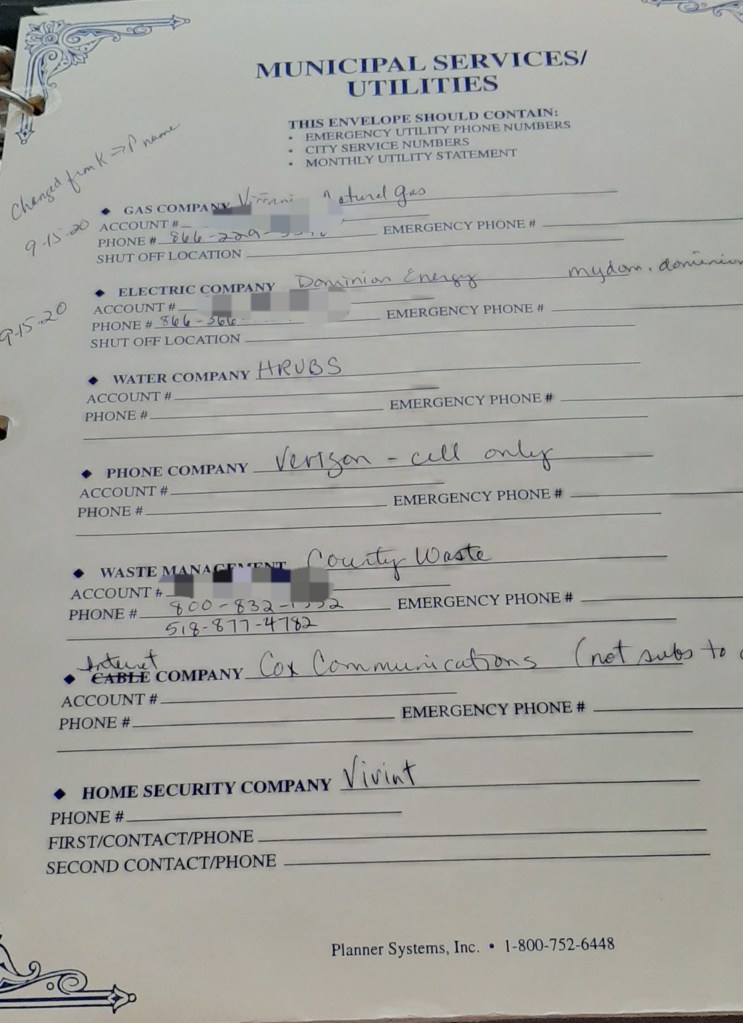 MUNICIPAL SERVICES/
UTILITIES
THIS ENVELOPE SHOULD CONTAIN:
• EMERGENCY UTILITY PHONE NUMBERS
• CITY SERVICE NUMBERS
• MONTHLY UTILITY STATEMENT
Changed from K => P name
◆ GAS COMPANY Natural Gas
9-15-20 ACCOUNT #
PHONE # 866-229- EMERGENCY PHONE #
SHUT OFF LOCATION
◆ ELECTRIC COMPANY Dominion Energy mydom.dominion
9-15-20 ACCOUNT #
PHONE # 866-366- EMERGENCY PHONE #
SHUT OFF LOCATION
◆ WATER COMPANY HRUBS
ACCOUNT #
PHONE # EMERGENCY PHONE #
◆ PHONE COMPANY Verizon - cell only
ACCOUNT #
PHONE # EMERGENCY PHONE #
◆ WASTE MANAGEMENT County Waste
ACCOUNT #
PHONE # 800-832- EMERGENCY PHONE #
518-877-4782
Internet
◆ CABLE COMPANY Cox Communications (not subs to
ACCOUNT #
PHONE # EMERGENCY PHONE #
◆ HOME SECURITY COMPANY Vivint
PHONE #
FIRST/CONTACT/PHONE
SECOND CONTACT/PHONE
Planner Systems, Inc. • 1-800-752-6448